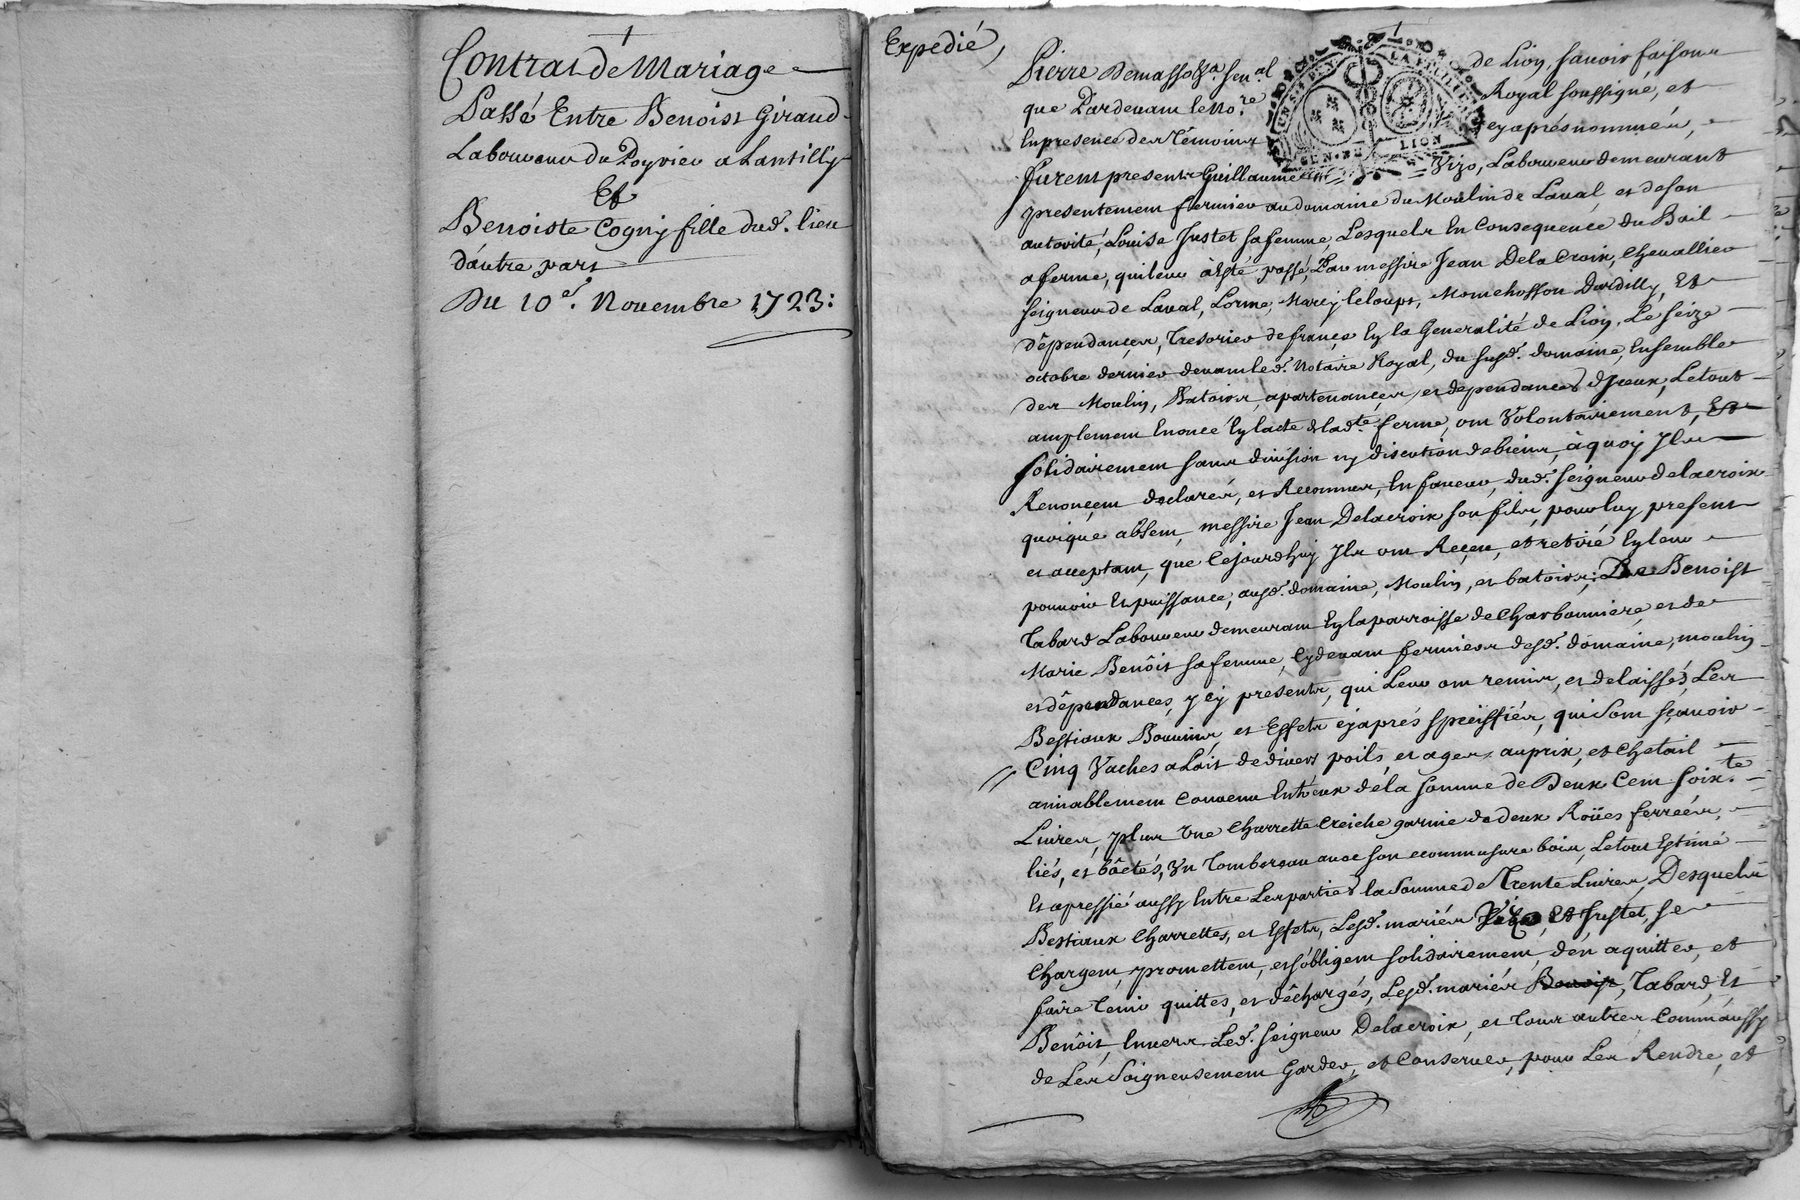 Contrat de Mariage
Passé Entre Benoist Giraud
Laboureur du Poyrieu a Lantilly
Et
Benoiste Cogny fille dud. lieu
d'autre part
Du 10e. Novembre 1723:
Expedié,
Pierre de Lion, sçavoir faisons
que Pardevant le no.re Royal soussigné, et
En presence des Témoins cy aprés nommés,
furent presents Guillaume Vizo, Laboureur demeurant
presentement fermier au domaine du Moulin de Laval, et de son
autorité, Louise Justet sa femme, Lesquels En Consequence du Bail
a ferme, qui leur à Esté passé, Par messire Jean Dela Croix, Chevallier
seigneur de Laval, Lorme, Marcy leloups, Dardilly, Et
dêpendances, Tresorier de france En la Generalité de Lion, Le seize
octobre dernier devant led. Notaire Royal, du susd. domaine, Ensemble
des Moulin, Batoirs, apartenances, et dependances d'Jceux, Le tout
amplement Enoncé En lacte de lad.te ferme, ont Volontairement, Et
solidairement sans division ny discution de biens, à quoy Jls
Renonçent declarés, et Reconnus, En faveur, dud. seigneur delacroix
quoique absent, messire Jean Delacroix son fils, pour luy present
et acceptant, que Cejourdhuy Jls ont Reçeu, et retiré En leur
pouvoir Et puissance, ausd. domaine, Moulin, et batoirs; De Benoist
Tabard Laboureur demeurant En la parroisse de Charbonniere, et de
Marie Benôit sa femme, Cydevant fermiers desd. domaine, moulin
et dêpendances, y cy presents, qui Leur ont remis, et delaissés, Les
Bestiaux Bouvins, et Effets cyaprés speciffiés, qui sont sçavoir
Cinq Vaches a Lait de divers poils, et ages, au prix, et Chetail
amiablement Convenu Entr'eux de la somme de Deux Cent soix.te
Livres, plus Vne Charrette Creiche garnie de deux Roües ferreés,
liés, et bôctés, Vn Tombereau avec son bois, Le tout Estimé
Et apressié aussy Entre Les parties la Somme de Trente Livres, Desquels
Bestiaux Charrettes, et Effets, Lesd. mariés Vizo, Et Justet, se
Chargent, promettent, et s'obligent solidairement, d'en aquitter, et
faire Tenir quittes, et dêchargés, Lesd. mariés Benoist, Tabard, Et
Benôit, Envers Led. seigneur Delacroix, et Tous autres Comm'aussy
de Les Soigneusement Garder, et Conserver, pour Les Rendre, et